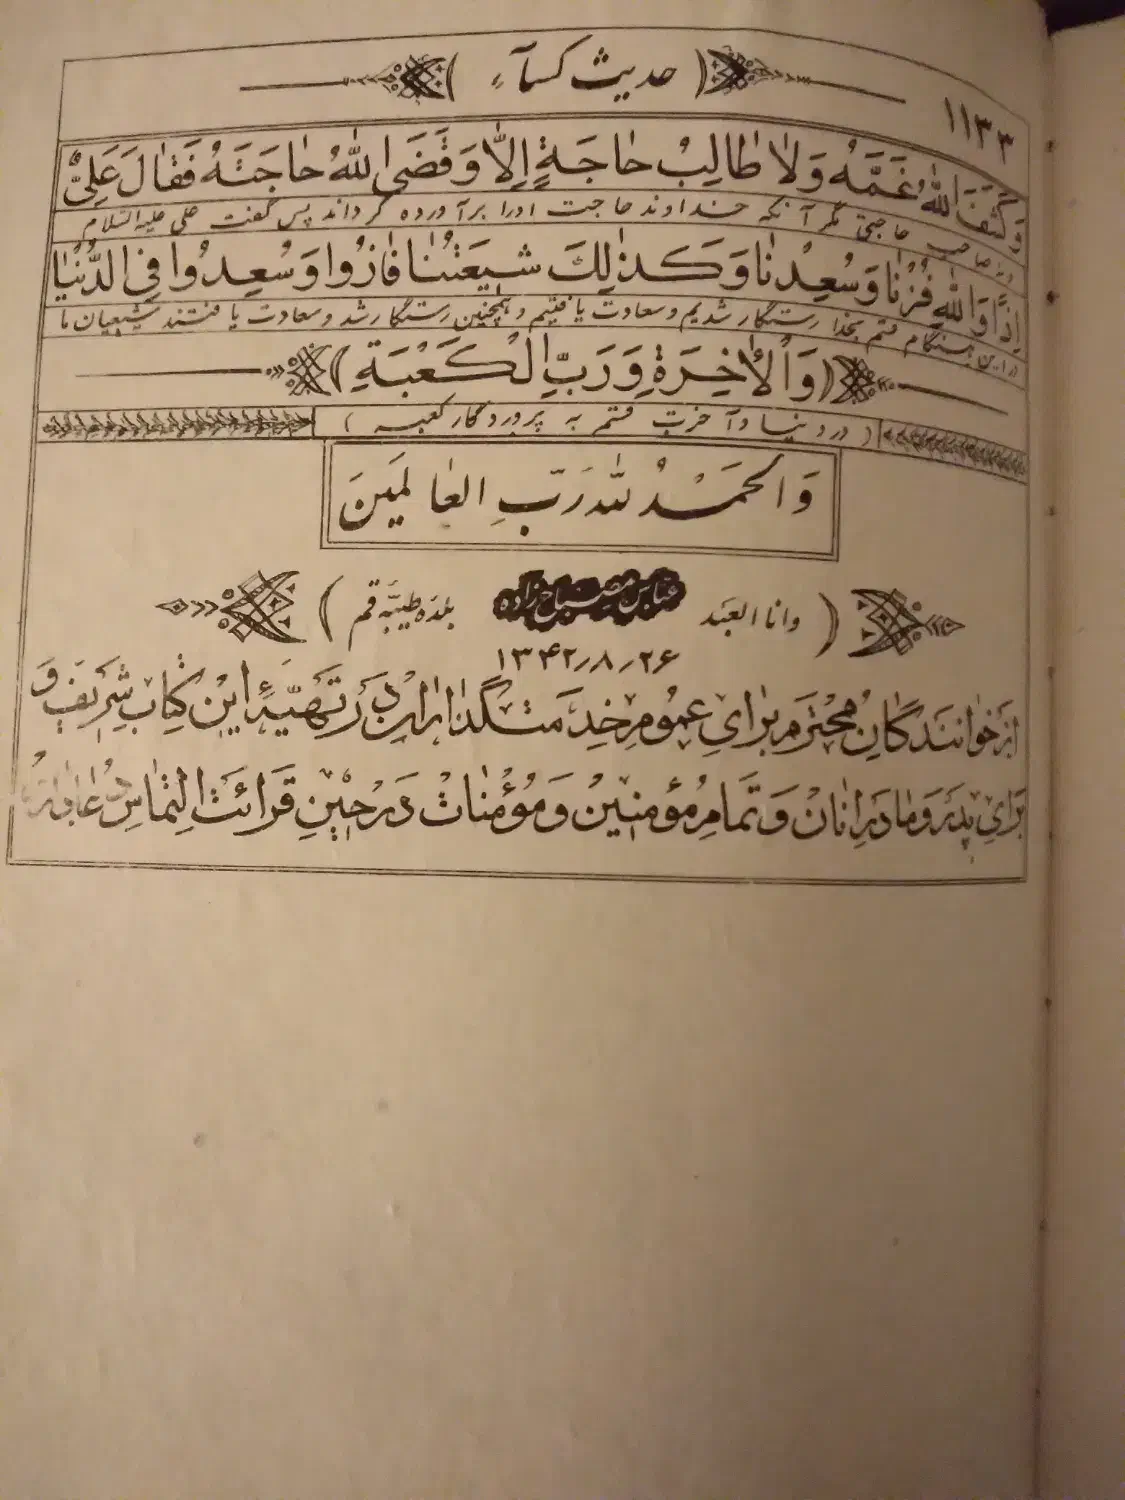 ۱۱۳۳
( حدیث کسآء )
وَكَشَفَ اللّٰهُ غَمَّهُ وَلٰا طٰالِبُ حٰاجَةٍ اِلّٰا وَقَضَی اللّٰهُ حٰاجَتَهُ فَقٰالَ عَلِیٌّ
ونه صاحب حاجتی مگر آنکه خداوند حاجت اورا برآورده گرداند پس گفت علی علیه السلام
اِذًا وَاللّٰهِ فُزْنٰا وَسُعِدْنٰا وَكَذٰلِكَ شیعَتُنٰا فٰازُوا وَسُعِدُوا فِی الدُّنْیٰا
در این هنگام قسم بخدا رستگار شدیم و سعادت یافتیم و همچنین رستگار شد و سعادت یافتند شیعیان ما
(وَالْاٰخِرَةِ وَرَبِّ الْكَعْبَةِ)
( در دنیا و آخرت قسم به پروردگار کعبه )
وَ الحَمْدُ لِلّٰه رَبِّ العٰالَمینَ
( وانا العَبد عباس مصباح زاده بلده طیبّه قم )
۱۳۴۲٫۸٫۲۶
از خوٰانَندگانِ مُحْتَرَم بَرٰایِ عُمُومِ خِدمَتگذارانِ دَر تَهیّهٔ اینْ کِتٰاب شَریف وَ
بَرٰایِ پِدَر وَ مٰادَرانِ آنان وَ تَمامِ مُؤمنینْ وَ مُؤْمِنٰاتْ دَر حینِ قَرائَتْ اِلتِمٰاسِ دُعا دٰارَد